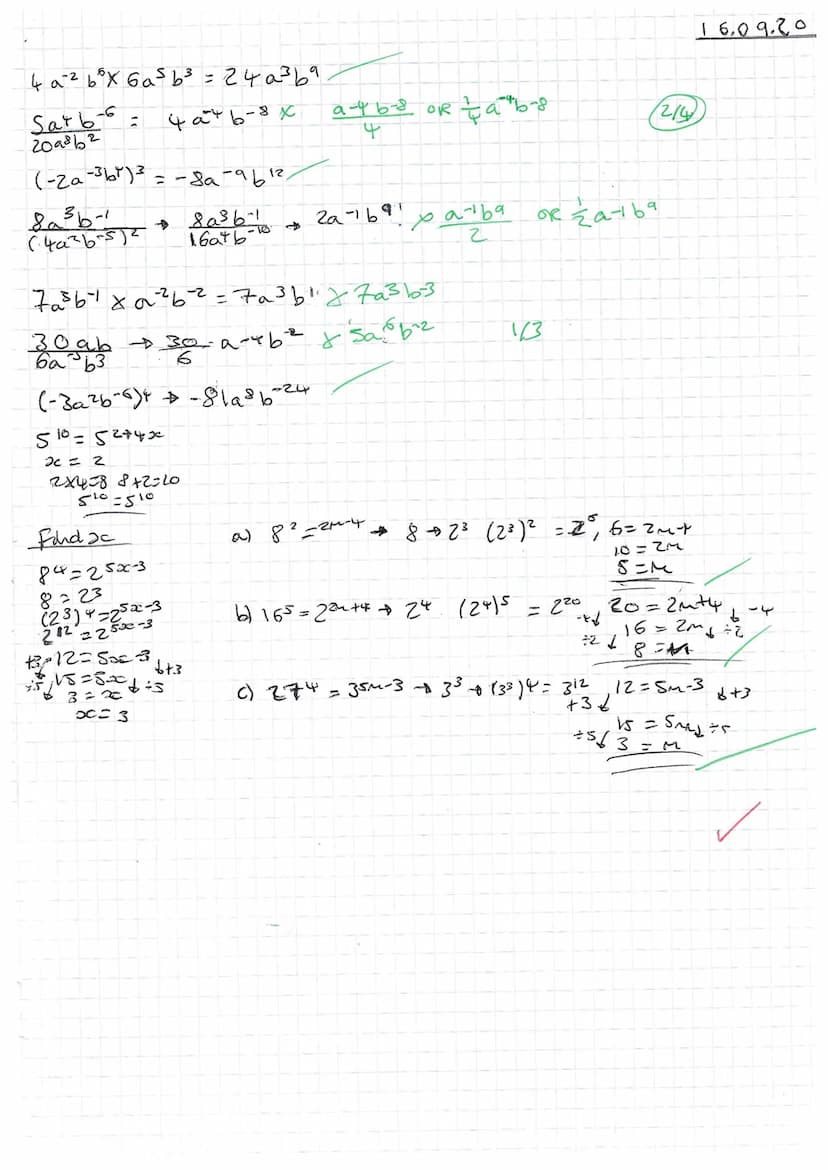 16.09.20
4a⁻² b⁶ × 6a⁵ b³ = 24a³b⁹
5a⁴b⁻⁶ / 20a⁸b² = 4a⁻⁴b⁻⁸ × a-4b-8 / 4 OR 1/4 a⁻⁴b-8 2/4
(-2a⁻³b⁴)³ = -8a⁻⁹b¹²
8a³b⁻¹ / (4a²b⁻⁵)² → 8a³b⁻¹ / 16a⁴b⁻¹⁰ → 2a⁻¹b⁹ × a⁻¹b⁹ / 2 OR 1/2 a-1b⁹
7a⁵b⁻¹ × a⁻²b⁻² = 7a³b¹ × 7a³b-3
30ab / 6a⁻⁵b³ → 30/6 a-4b⁻² × 5a⁶b-2 1/3
(-3a²b⁻⁶)⁴ → -81a⁸b⁻²⁴
5¹⁰ = 5²⁺⁴ˣ
x = 2
2×4=8 8+2=10
5¹⁰ = 5¹⁰
Find x
8⁴ = 2⁵ˣ⁻³
8 = 23
(23)⁴ = 2⁵ˣ⁻³
2¹² = 2⁵ˣ⁻³
+3 12 = 5x-3 ↓+3
÷5 ↓ 15 = 5x ↓ ÷5
3 = x
x = 3
a) 8² = ²ᵐ⁻⁴ → 8 → 2³ (2³)² = 2⁶, 6 = 2m+
10 = 2m
5 = m
b) 16⁵ = 2²ᵐ⁺⁴ → 2⁴ (2⁴)⁵ = 2²⁰ 20 = 2m+4 ↓ -4
-4 ↓ 16 = 2m ↓ ÷2
÷2 ↓ 8 = m
c) 27⁴ = 3⁵ᵐ⁻³ → 3³ → (3³)⁴ = 3¹² 12 = 5m-3 ↓+3
+3 ↓ 15 = 5m ↓ ÷5
÷5 ↓ 3 = m